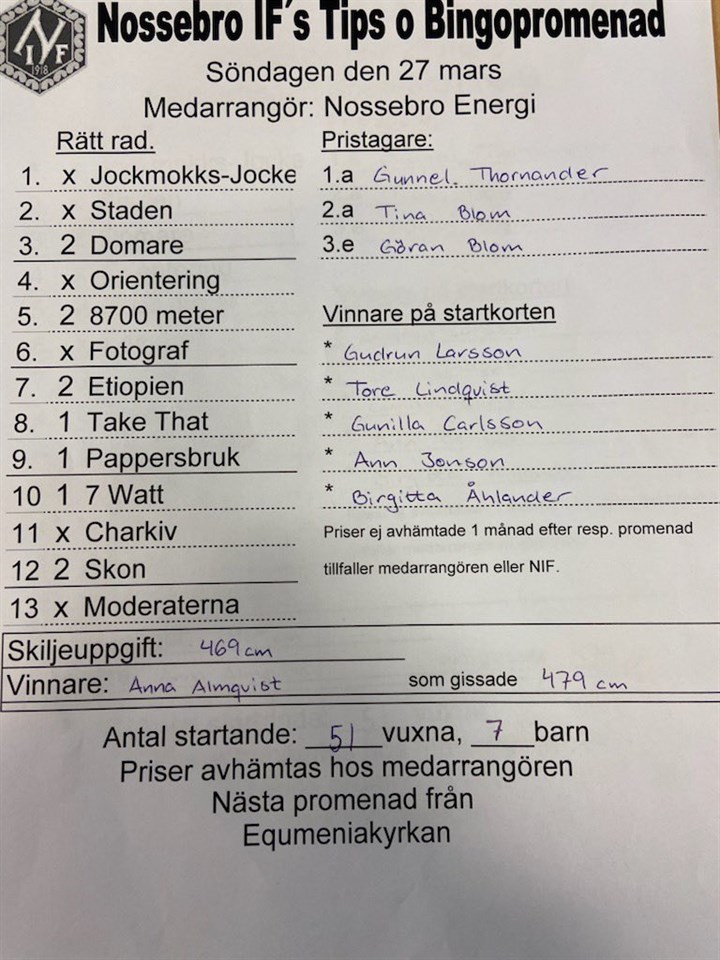 Nossebro IF's Tips o Bingopromenad
NIF
1918
Söndagen den 27 mars
Medarrangör: Nossebro Energi
Rätt rad.
1. x Jockmokks-Jocke
2. x Staden
3. 2 Domare
4. x Orientering
5. 2 8700 meter
6. x Fotograf
7. 2 Etiopien
8. 1 Take That
9. 1 Pappersbruk
10 1 7 Watt
11 x Charkiv
12 2 Skon
13 x Moderaterna
Pristagare:
1.a Gunnel Thornander
2.a Tina Blom
3.e Göran Blom
Vinnare på startkorten
* Gudrun Larsson
* Tore Lindqvist
* Gunilla Carlsson
* Ann Jonson
* Birgitta Åhlander
Priser ej avhämtade 1 månad efter resp. promenad
tillfaller medarrangören eller NIF.
Skiljeuppgift: 469 cm
Vinnare: Anna Almqvist som gissade 479 cm
Antal startande: 51 vuxna, 7 barn
Priser avhämtas hos medarrangören
Nästa promenad från
Equmeniakyrkan